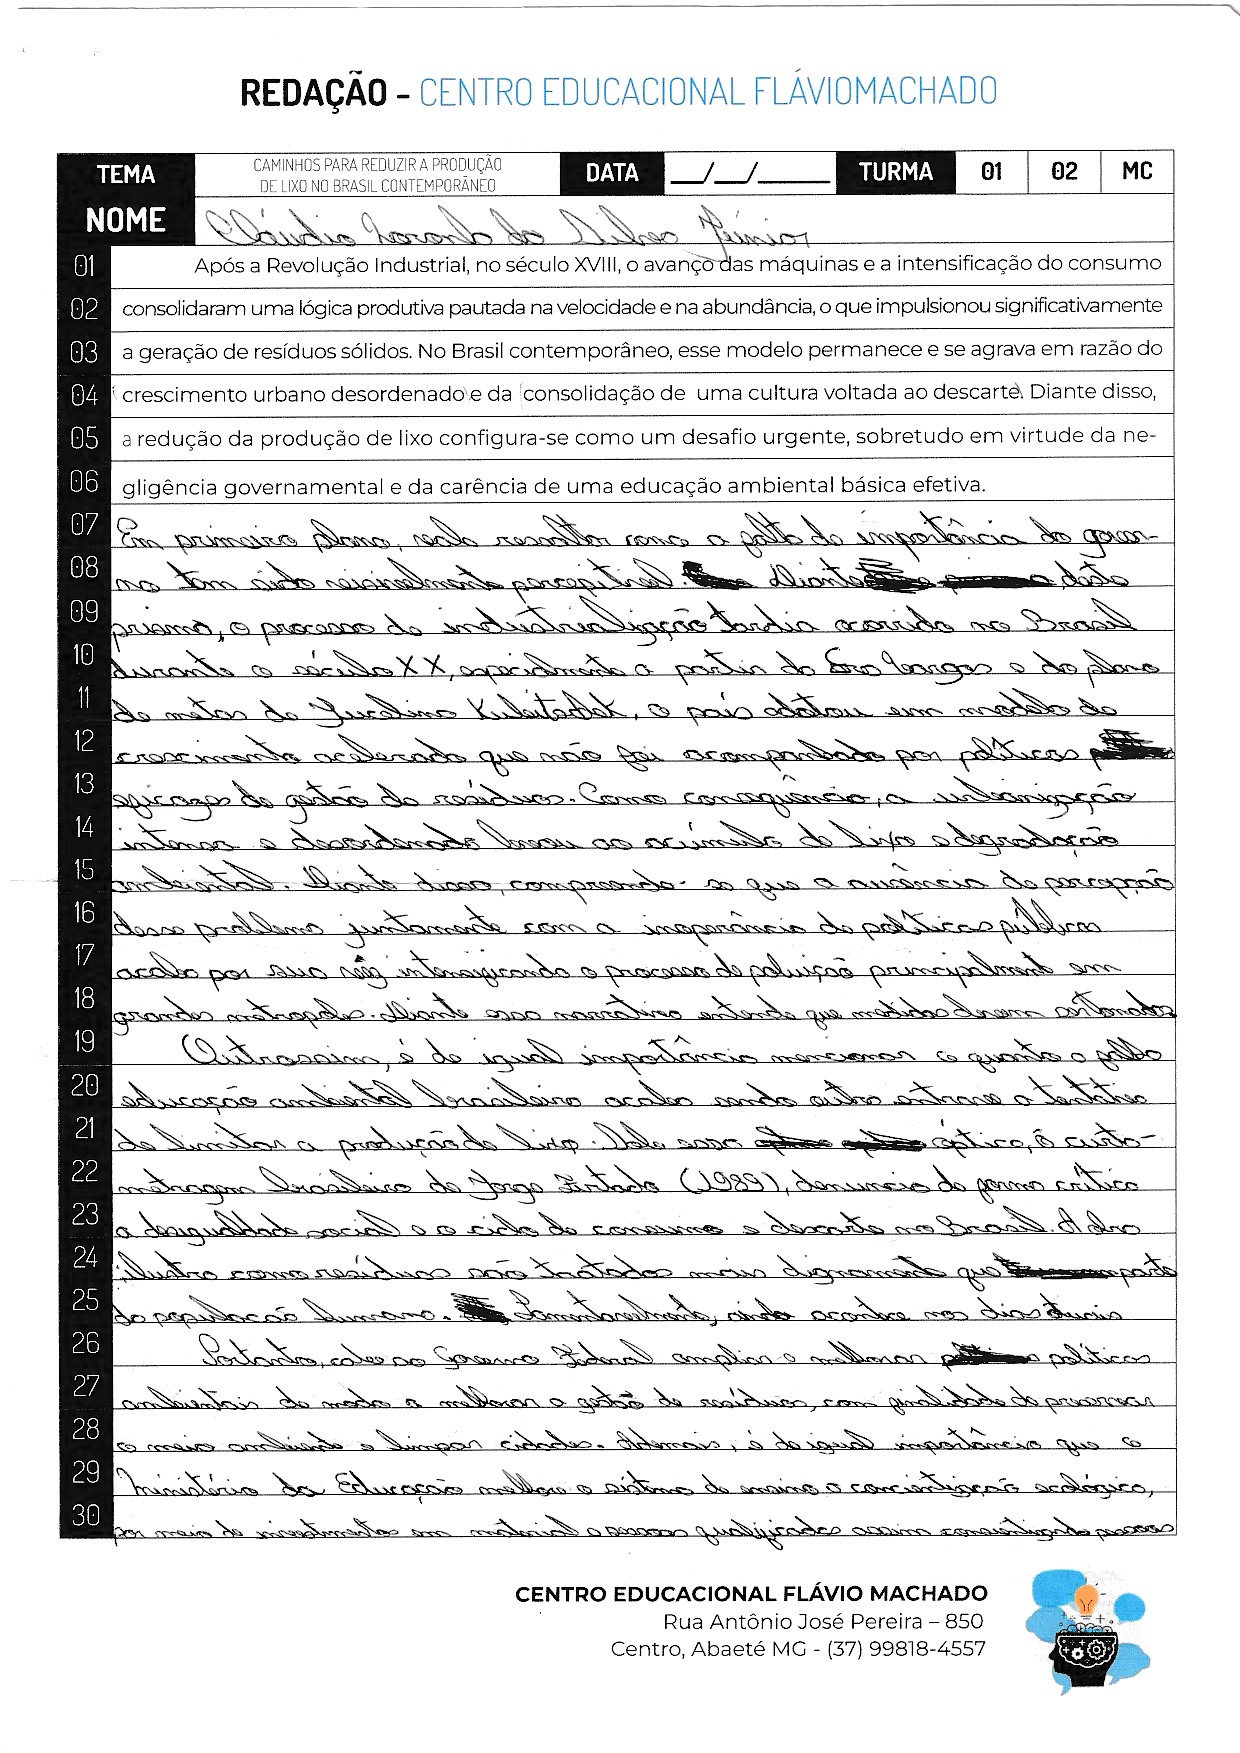 REDAÇÃO - CENTRO EDUCACIONAL FLÁVIOMACHADO
TEMA CAMINHOS PARA REDUZIR A PRODUÇÃO DE LIXO NO BRASIL CONTEMPORÂNEO DATA __/__/____ TURMA 01 02 MC
NOME Cláudio da Silva Júnior
01 Após a Revolução Industrial, no século XVIII, o avanço das máquinas e a intensificação do consumo
02 consolidaram uma lógica produtiva pautada na velocidade e na abundância, o que impulsionou significativamente
03 a geração de resíduos sólidos. No Brasil contemporâneo, esse modelo permanece e se agrava em razão do
04 crescimento urbano desordenado e da consolidação de uma cultura voltada ao descarte. Diante disso,
05 a redução da produção de lixo configura-se como um desafio urgente, sobretudo em virtude da ne-
06 gligência governamental e da carência de uma educação ambiental básica efetiva.
07 Em primeiro plano, vale ressaltar como a falta de importância do gover-
08 no tem sido Diante deste
09 prisma, o processo de industrialização tardia ocorrido no Brasil
10 durante o século XX, especialmente a partir da Era Vargas e do plano
11 de metas de Juscelino Kubitschek, o país adotou um modelo de
12 crescimento acelerado que não foi acompanhado por políticas
13 eficazes de gestão de resíduos. Como consequência, a urbanização
14 intensa e desordenada levou ao acúmulo de lixo e degradação
15 ambiental. Diante disso, compreende-se que a ausência de percepção
16 desse problema juntamente com a inoperância de políticas públicas
17 acaba por sua vez intensificando o processo de poluição principalmente em
18 grandes metrópoles. Diante essa narrativa entende que medidas devem
19 Outrossim, é de igual importância mencionar o quanto a falta
20 educação ambiental brasileira acaba sendo outro entrave a tentativa
21 de limitar a produção de lixo. Sob essa óptica, o curta-
22 metragem brasileiro de Jorge Furtado (1989), denuncia de forma crítica
23 a desigualdade social e o ciclo de consumo e descarte no Brasil. A obra
24 ilustra como resíduos são tratados mais dignamente que parte
25 da população humana. Lamentavelmente, ainda acontece nos dias atuais
26 Portanto, cabe ao Governo Federal ampliar e melhorar políticas
27 ambientais de modo a melhorar a gestão de resíduos, com finalidade de preservar
28 o meio ambiente e limpar cidades. Ademais, é de igual importância que o
29 Ministério da Educação melhore o sistema de ensino a concientização ecológica,
30 por meio de investimentos em material e pessoas qualificadas assim pessoas
CENTRO EDUCACIONAL FLÁVIO MACHADO
Rua Antônio José Pereira – 850
Centro, Abaeté MG - (37) 99818-4557